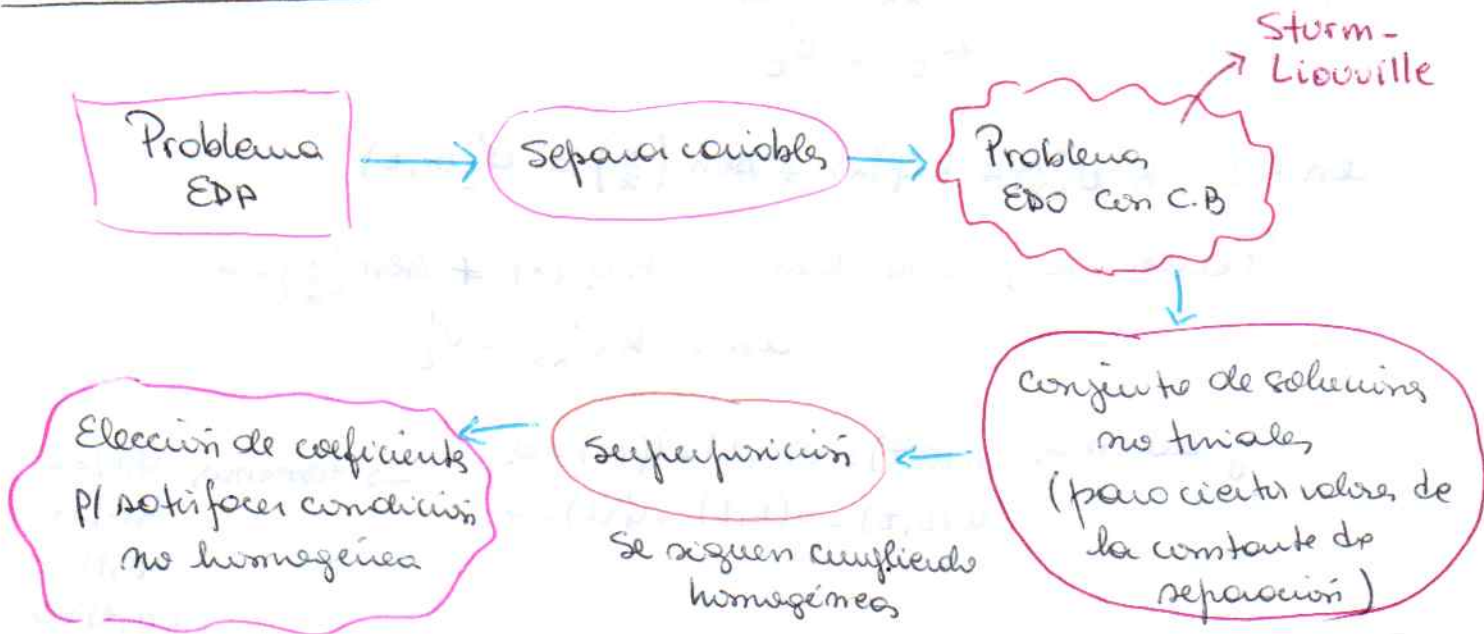 Sturm-
Liouville
Problema
EDP
Separar variables
Problema
EDO con C.B
conjunto de soluciones
no triviales
(para ciertos valores de
la constante de
separación)
superposición
se siguen cumpliendo
homogéneas
Elección de coeficientes
p/ satisfacer condición
no homogénea